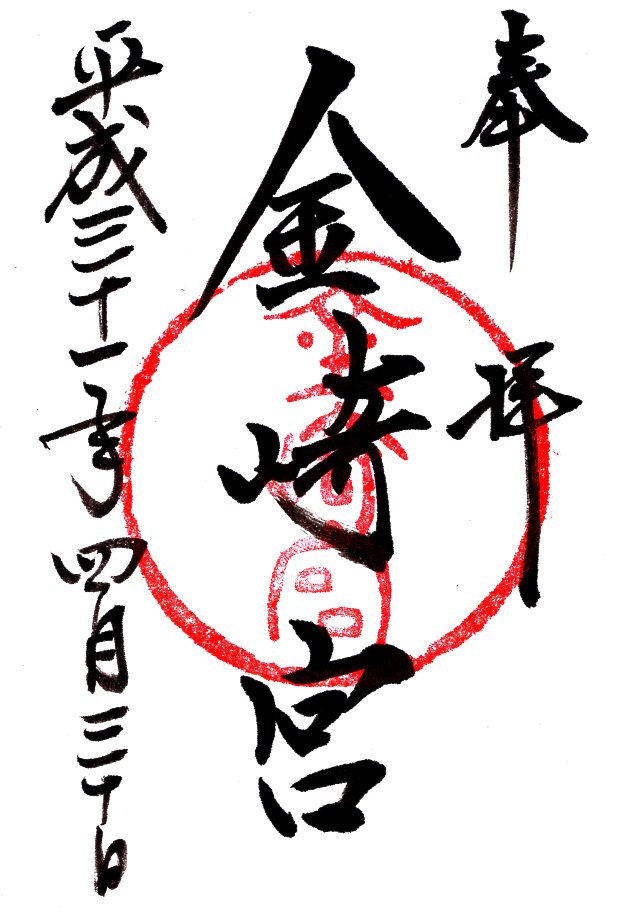 奉拝
金崎宮
金崎宮
平成三十一年四月三十日